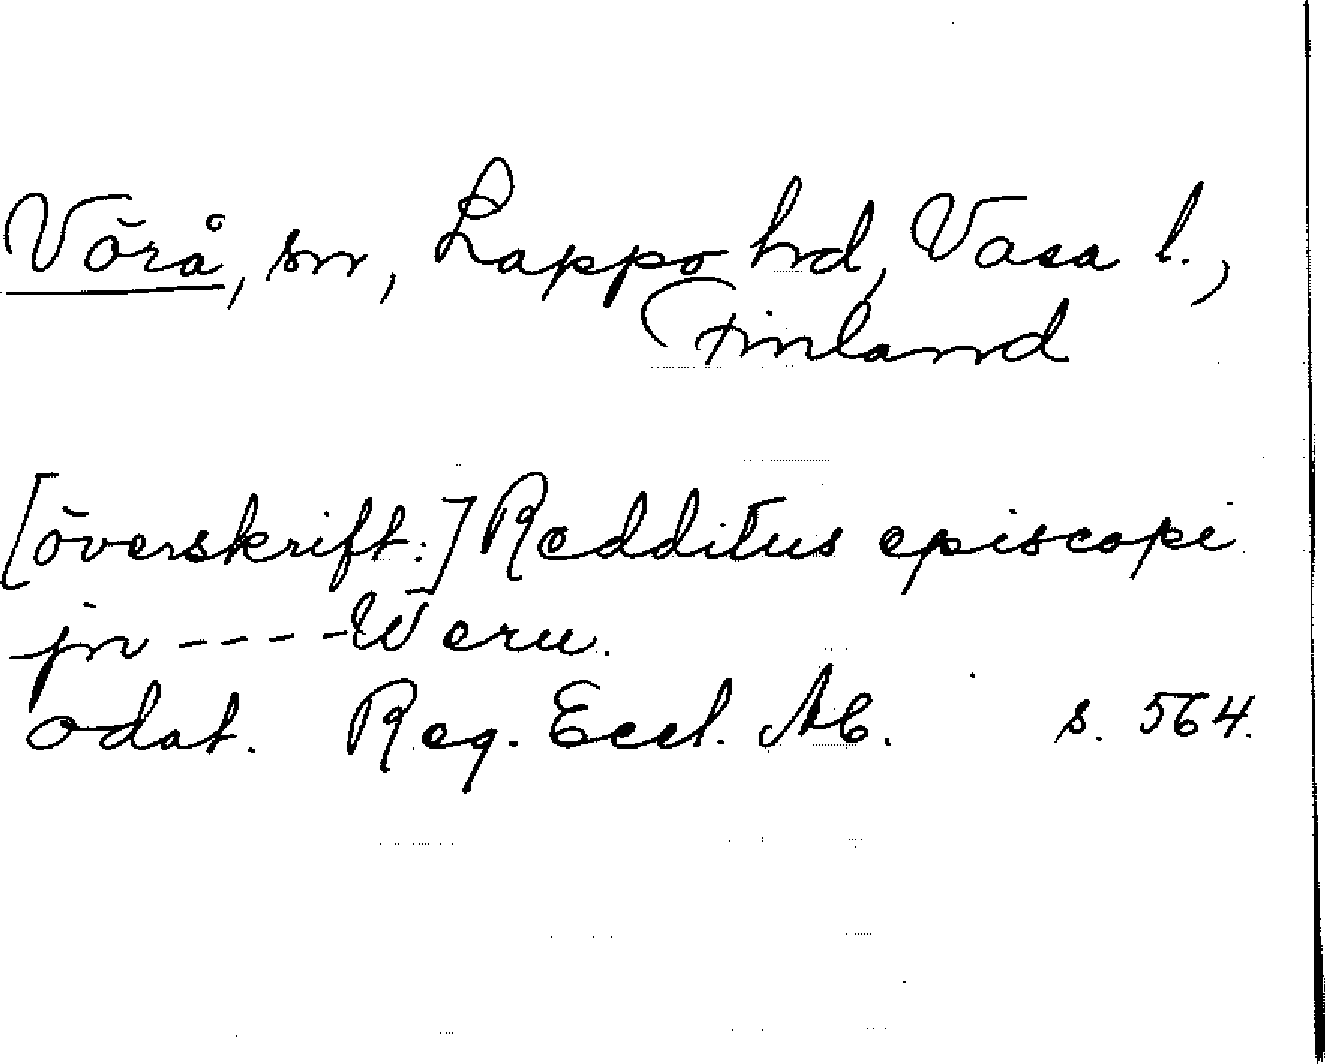 Vörå, sn, Lappo hd, Vasa l.,
Finland
[överskrift:] Redditus episcopi
jn ---- Weru.
odat. Reg. Eccl. Ab. s. 564.